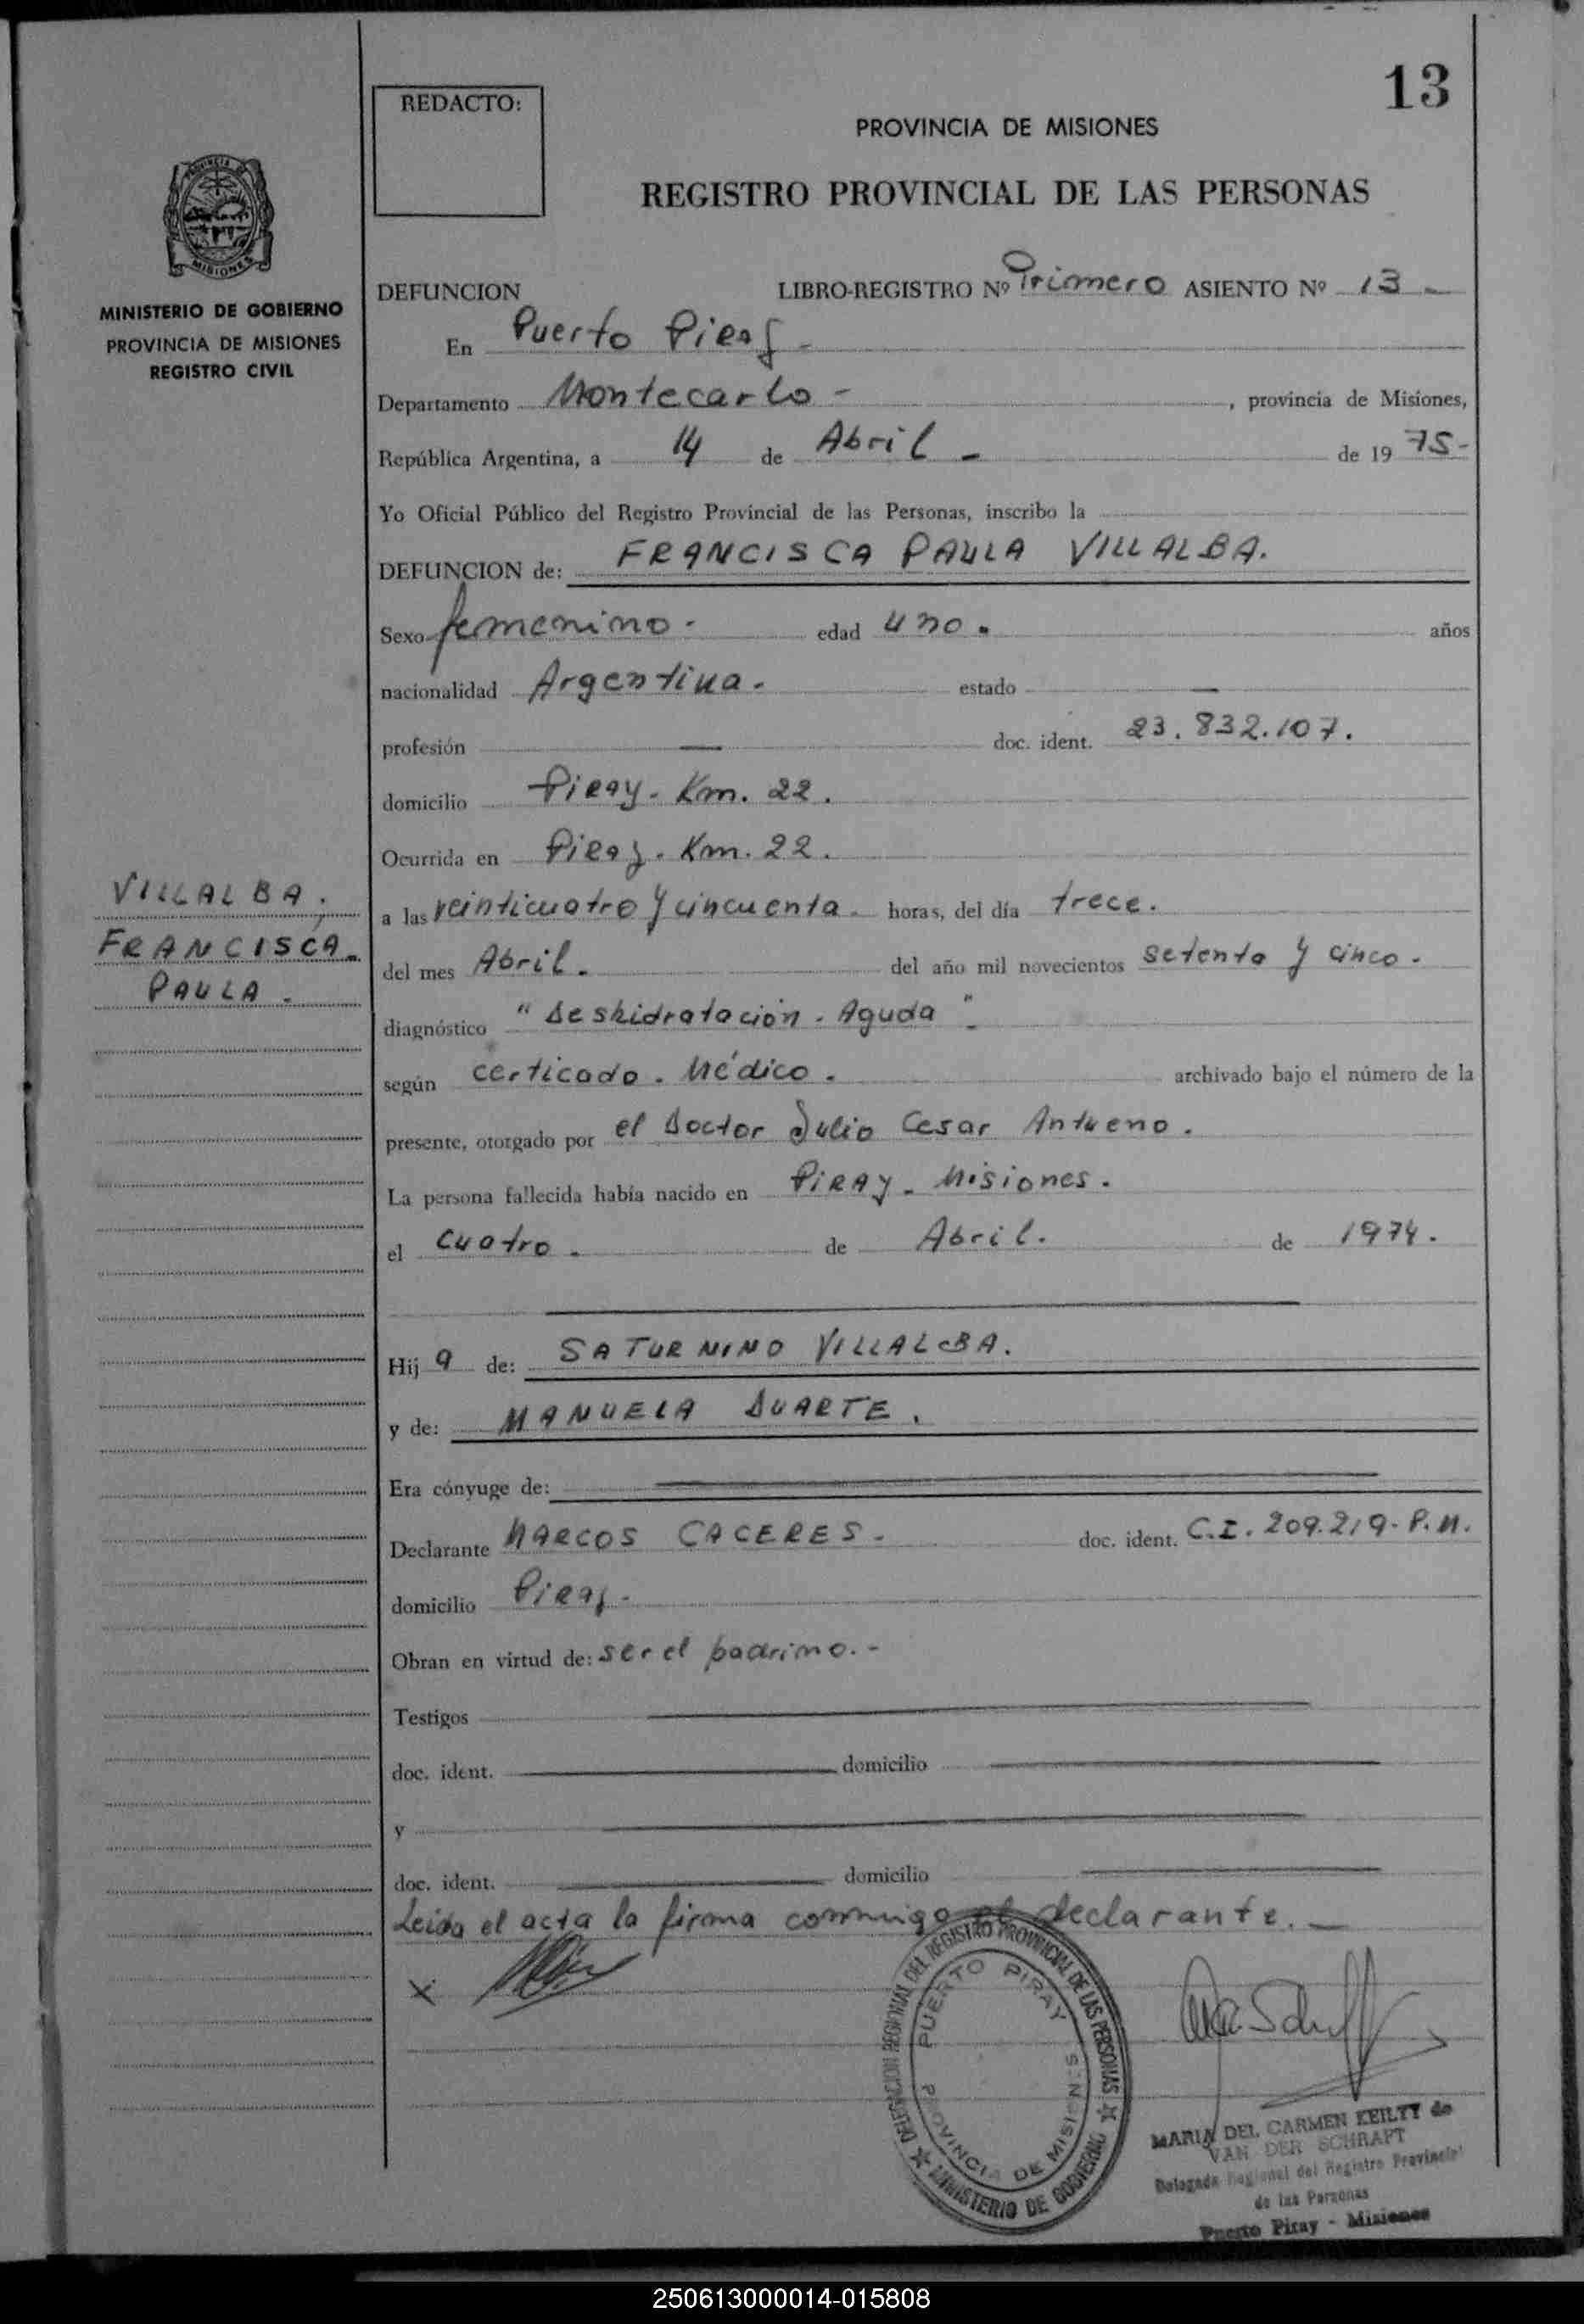 13
REDACTO:
PROVINCIA DE MISIONES
REGISTRO PROVINCIAL DE LAS PERSONAS
MISIONES
MINISTERIO DE GOBIERNO
PROVINCIA DE MISIONES
REGISTRO CIVIL
DEFUNCION LIBRO-REGISTRO Nº Primero ASIENTO Nº 13 -
En Puerto Piray -
Departamento Montecarlo - , provincia de Misiones,
República Argentina, a 14 de Abril - de 19 75-
Yo Oficial Público del Registro Provincial de las Personas, inscribo la
DEFUNCION de: FRANCISCA PAULA VILLALBA.
Sexo femenino. edad uno. años
nacionalidad Argentina. estado —
profesión — doc. ident. 23.832.107.
domicilio Piray. Km. 22.
Ocurrida en Piray. Km. 22.
VILLALBA,
FRANCISCA
PAULA.
a las veinticuatro y cincuenta. horas, del día trece.
del mes Abril. del año mil novecientos setenta y cinco.
diagnóstico "Deshidratación. Aguda".
según certicado. Médico. archivado bajo el número de la
presente, otorgado por el Doctor Julio Cesar .
La persona fallecida había nacido en Piray. Misiones.
el cuatro. de Abril. de 1974.
Hij a de: SATURNINO VILLALBA.
y de: MANUELA DUARTE.
Era cónyuge de:
Declarante MARCOS CACERES. doc. ident. C.I. 209.219. P.M.
domicilio Piray.
Obran en virtud de: ser el padrino.-
Testigos
doc. ident. domicilio
y
doc. ident. domicilio
Leida el acta la firma conmigo el declarante.
X
DELEGACION REGIONAL DEL REGISTRO PROVINCIAL DE LAS PERSONAS
PUERTO PIRAY
PROVINCIA DE MISIONES
MINISTERIO DE GOBIERNO
MARIA DEL CARMEN KEILTY de
VAN DER SCHRAFT
Delegada Regional del Registro Provincial
de las Personas
Puerto Piray - Misiones
250613000014-015808